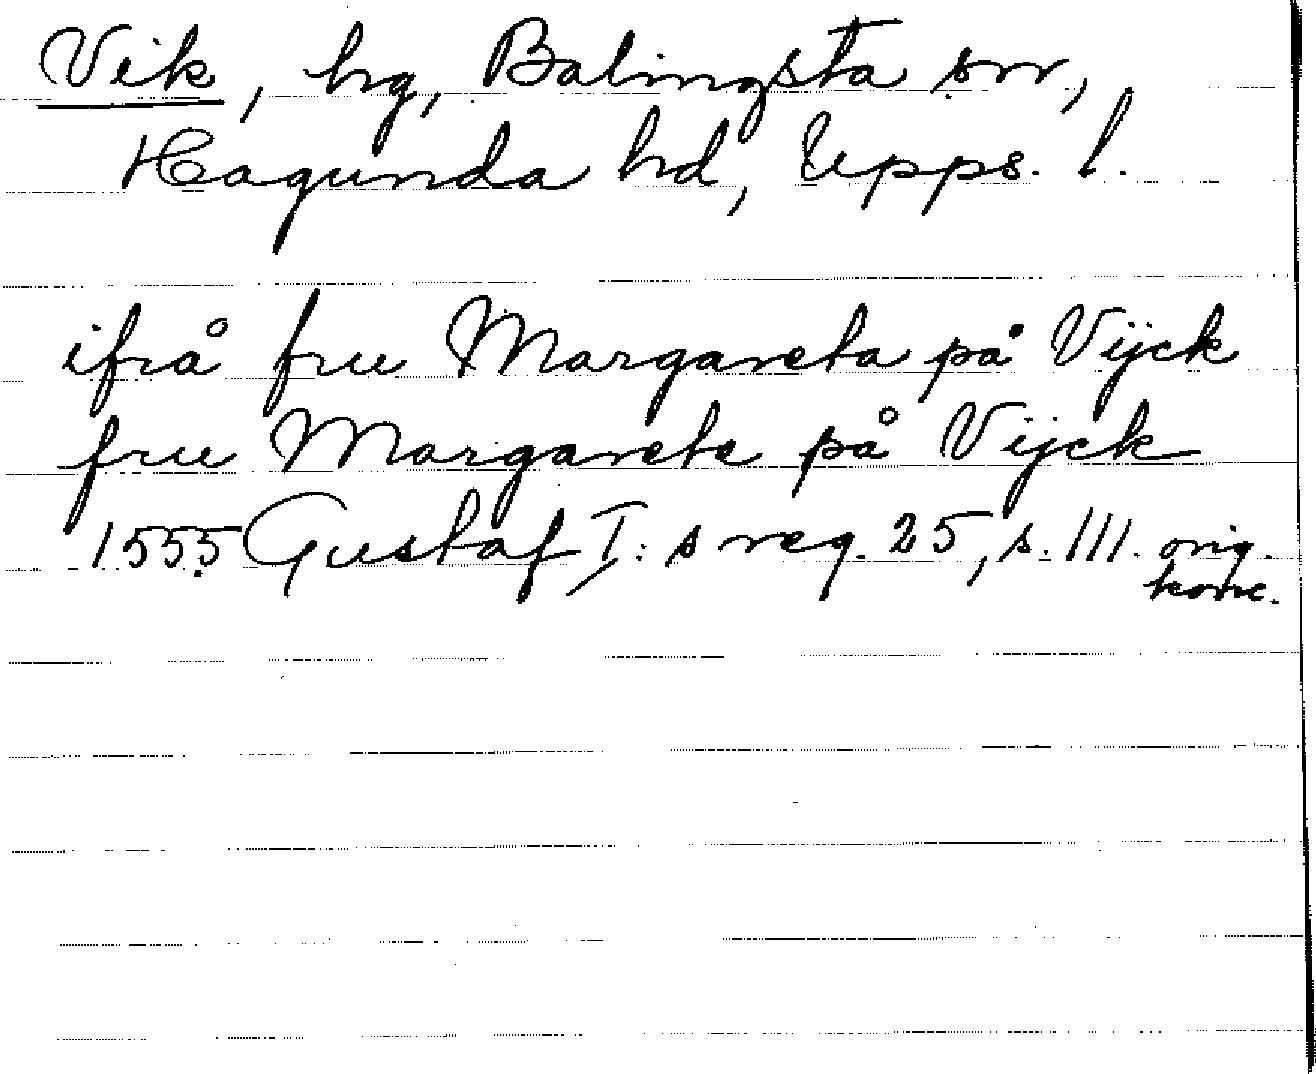 Vik, hg, Balingsta sn,
Hagunda hd, Upps. l.
ifrå fru Margareta på Vijck
fru Margareta på Vijck
1555 Gustaf I: s reg. 25, s. 111. orig.
konc.